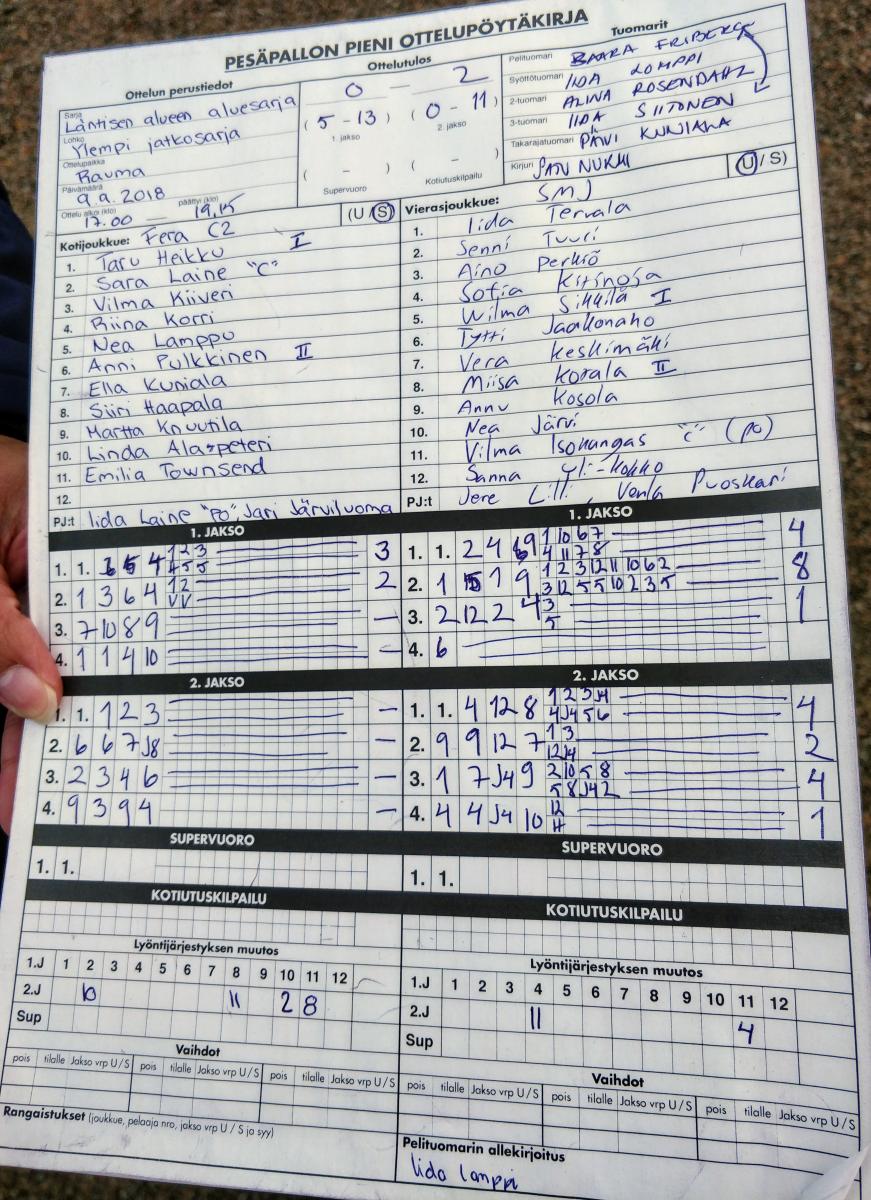 PESÄPALLON PIENI OTTELUPÖYTÄKIRJA
Ottelun perustiedot
Sarja
Läntisen alueen aluesarja
Lohko
Ylempi jatkosarja
Ottelupaikka
Rauma
Päivämäärä
9.9.2018
Ottelu alkoi (klo) päättyi (klo)
17.00 — 19.15
Ottelutulos
0 — 2
( 5 - 13 ) ( 0 - 11 )
1. jakso 2. jakso
( - ) ( - )
Supervuoro Kotiutuskilpailu
Tuomarit
Pelituomari BAARA FRIBERG
Syöttötuomari IIDA LOMPPI
2-tuomari ALINA ROSENDAHL
3-tuomari IIDA SIITONEN
Takarajatuomari PÄIVI KUNIALA
Kirjuri SATU NUKHI
Kotijoukkue: Fera C2 (U / S)
1. Taru Heikku I
2. Sara Laine "C"
3. Vilma Kiiveri
4. Riina Korri
5. Nea Lamppu
6. Anni Pulkkinen II
7. Ella Kuniala
8. Siiri Haapala
9. Martta Knuutila
10. Linda Ala-peteri
11. Emilia Townsend
12.
PJ:t Iida Laine "PO", Jari Järviluoma
Vierasjoukkue: SMJ (U / S)
1. Iida Tervala
2. Senni Tuuri
3. Aino Perkiö
4. Sofia Kitinoja
5. Wilma Sikkilä I
6. Tytti Jaakonaho
7. Vera Keskimäki
8. Miisa Korala II
9. Annu Kosola
10. Nea Järvi
11. Vilma Isohangas "C" (PO)
12. Sanna Yli-Kokko
PJ:t Jere Lilli, Venla Puoskari
1. JAKSO
1. 1. 5 4 1 2 3 3
2. 1 3 6 4 1 2 2
V V
3. 7 10 8 9 —
4. 1 1 4 10 —
2. JAKSO
1. 1. 1 2 3 —
2. 6 6 7 J8 —
3. 2 3 4 6 —
4. 9 3 9 4 —
SUPERVUORO
1. 1.
KOTIUTUSKILPAILU
Lyöntijärjestyksen muutos
1.J 1 2 3 4 5 6 7 8 9 10 11 12
2.J 10 11 2 8
Sup
Vaihdot
pois tilalle Jakso vrp U / S pois tilalle Jakso vrp U / S pois tilalle Jakso vrp U / S
Rangaistukset (joukkue, pelaaja nro, jakso vrp U / S ja syy)
1. JAKSO
1. 1. 2 4 6 9 1 10 6 7 4
4 11 7 8
2. 1 5 1 9 1 2 3 12 11 10 6 2 8
3 12 5 5 10 2 3 5
3. 2 12 2 4 3 1
5
4. 6
2. JAKSO
1. 1. 4 12 8 1 2 3 J4 4
4 J4 5 6
2. 9 9 12 7 1 3 2
12 J4
3. 1 7 J4 9 2 10 5 8 4
5 8 J4 2
4. 4 4 J4 10 12 1
SUPERVUORO
1. 1.
KOTIUTUSKILPAILU
Lyöntijärjestyksen muutos
1.J 1 2 3 4 5 6 7 8 9 10 11 12
2.J 11 4
Sup
Vaihdot
pois tilalle Jakso vrp U / S pois tilalle Jakso vrp U / S pois tilalle Jakso vrp U / S
Pelituomarin allekirjoitus
Iida Lomppi